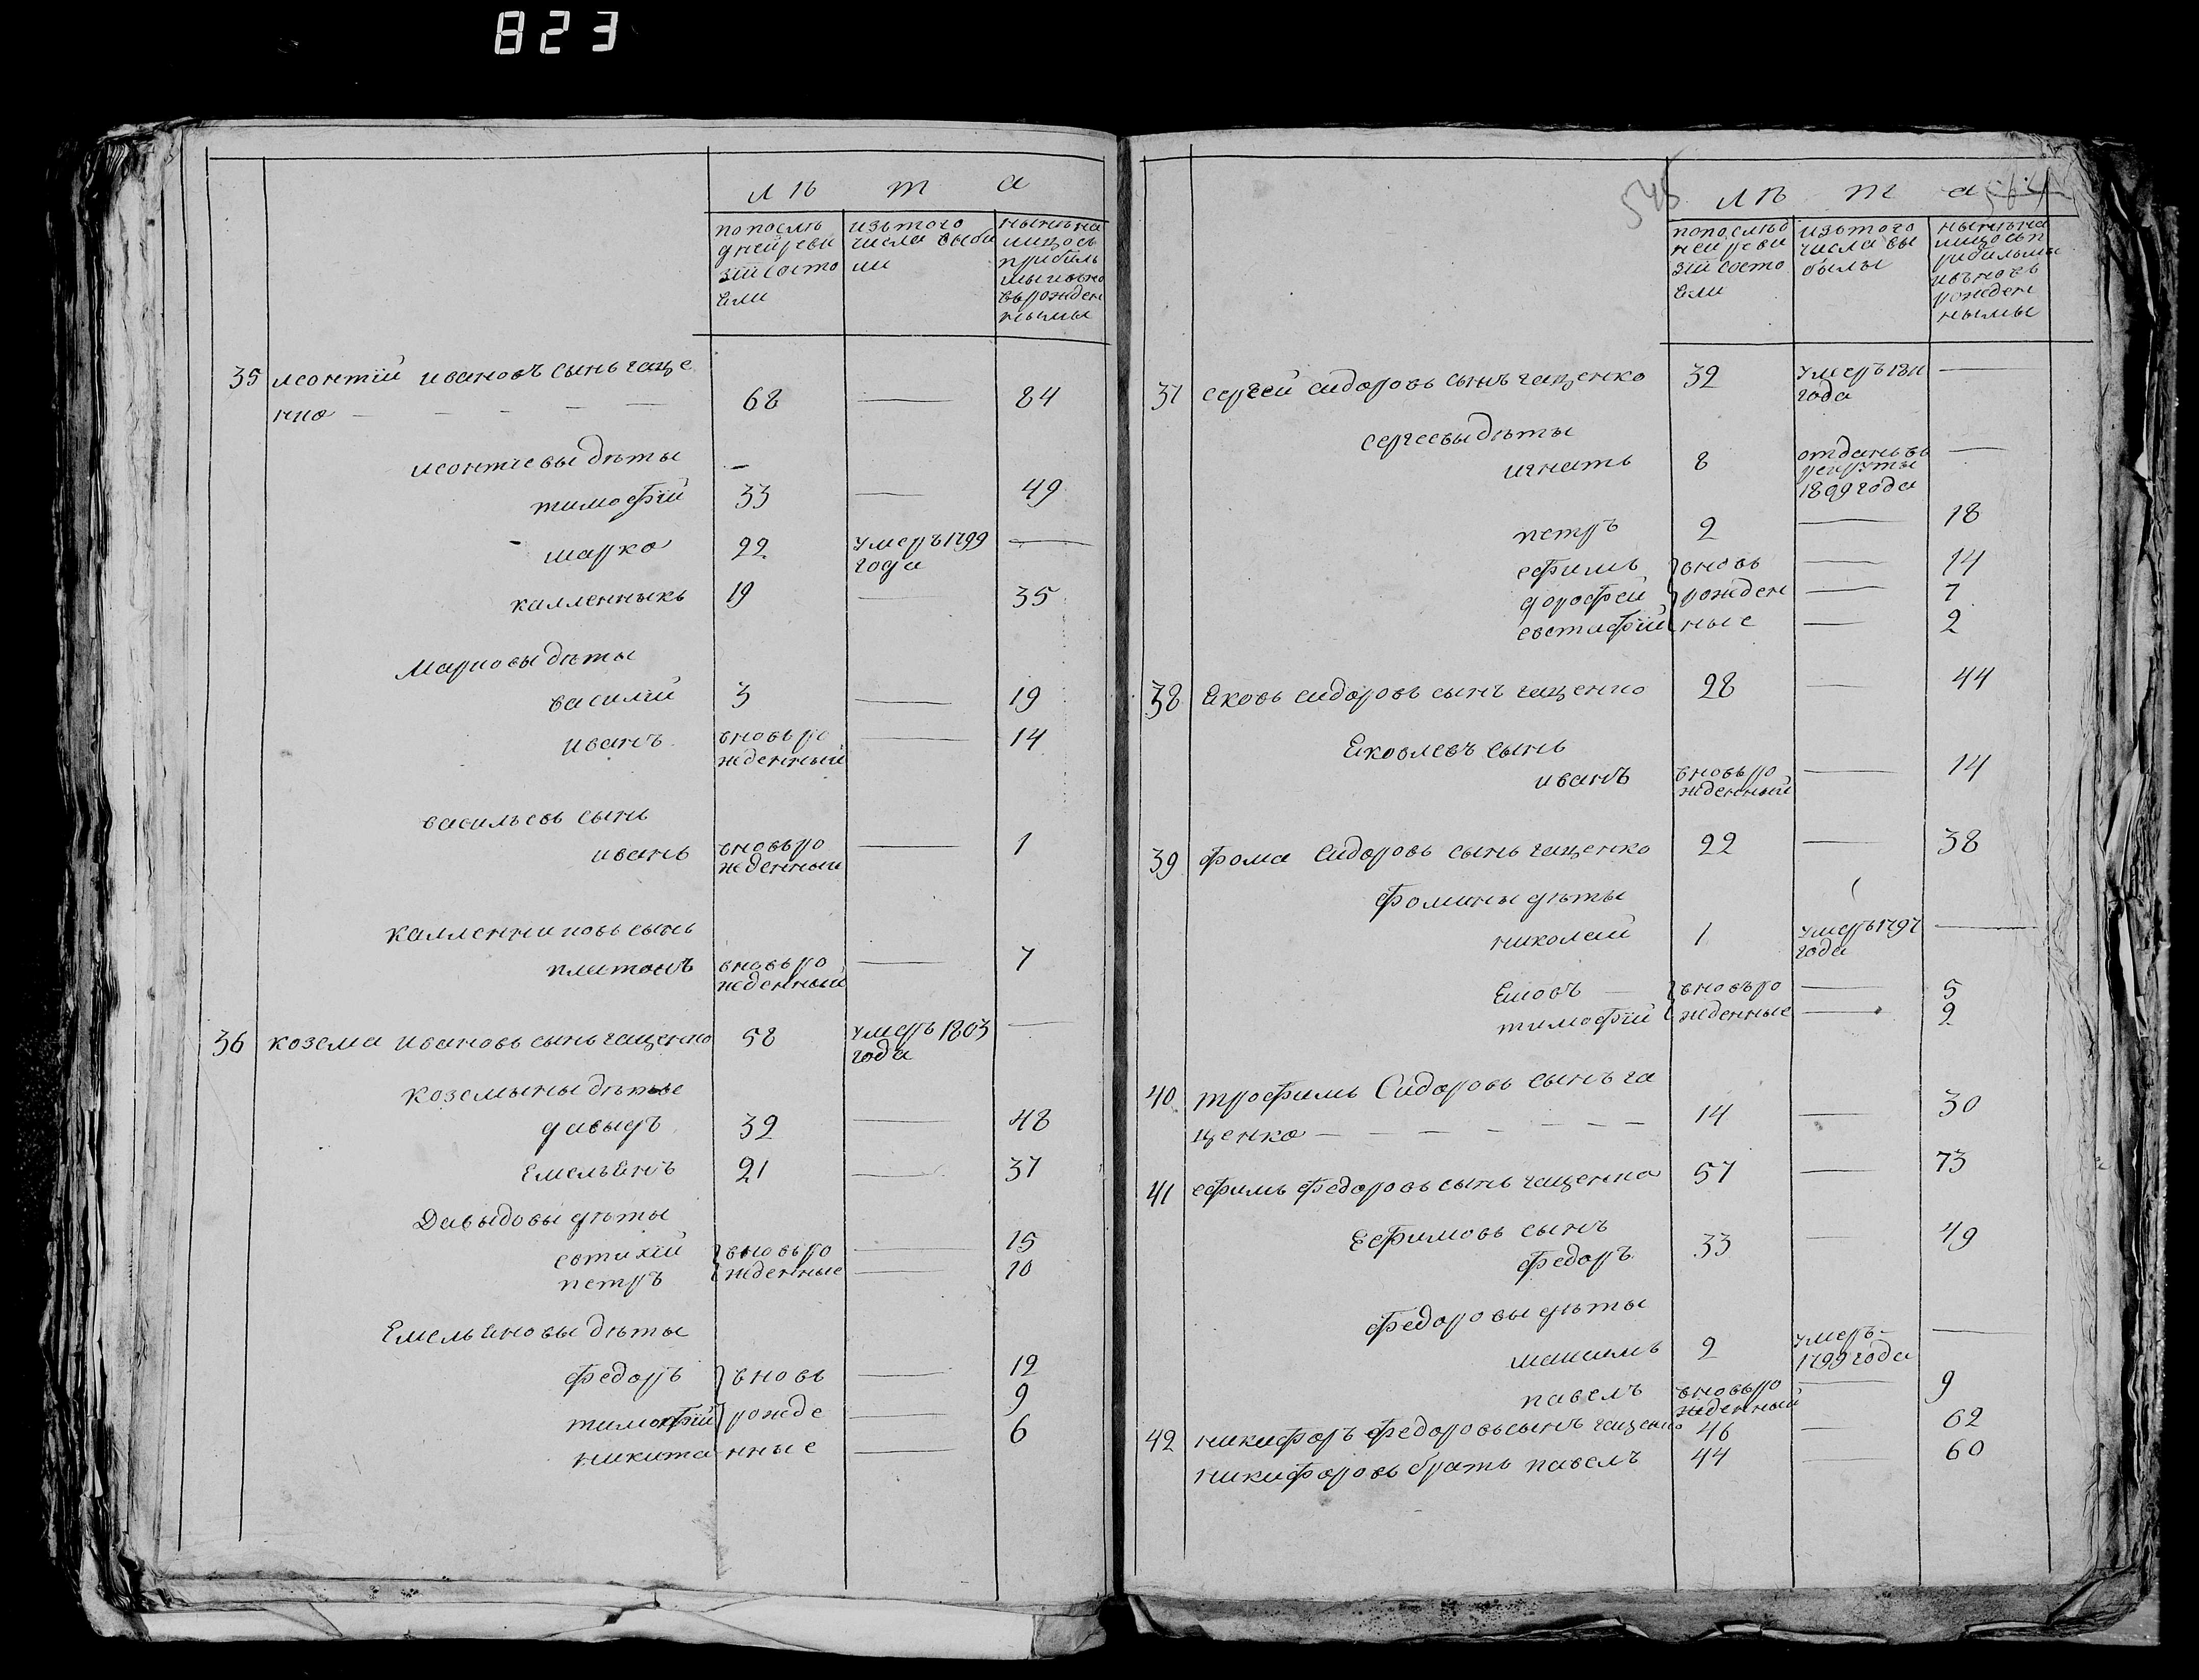 823
лѣ т а
попослѣ
дней реви
зіи состо
яли
изътого
числа выбы
ли
нынѣ на
лицо съ
прибыль
мы и вно
въ рожден
ными
35 леонтій ивановъ сынъ гаще
нко — — — — — 68 — 84
леонтіевы дѣты
тимофѣй 33 — 49
марко 22 умеръ 1799
года —
калленныкъ 19 — 35
Марковы дѣты
василій 3 — 19
иванъ вновь ро
жденный — 14
васильевъ сынъ
иванъ вновь ро
жденный — 1
калленниковъ сынъ
платонъ вновь ро
жденный — 7
36 козема ивановъ сынъ гащенко 58 умеръ 1803
года —
коземыны дѣты
давыдъ 32 — 48
Емельянъ 21 — 37
Давыдовы дѣты
евтихій вновь ро — 15
петръ жденные — 10
Емельяновы дѣты
федоръ вновь — 12
тимофѣй рожде — 9
никита нные — 6
545
лѣ т а
попослѣд
ней реви
зіи состо
яли
изътого
числа вы
былы
нынѣ на
лицо съ п
рибылымы
и вновь
рожден
нымы
37 сергей сидоровъ сынъ гащенко 32 умеръ 1811
года —
сергеевы дѣты
игнатъ 8 отданъ въ
рекруты
1809 года —
петръ 2 — 18
ефимъ вновь — 14
дорофей рожден — 7
евстафій ные — 2
38 яковъ сидоровъ сынъ гащенко 28 — 44
яковлевъ сынъ
иванъ вновь ро
жденный — 14
39 фома сидоровъ сынъ гащенко 22 — 38
Фомины дѣты
николай 1 умеръ 1797
года —
яковъ — вновь ро — 5
тимофѣй жденные — 2
40 трофимъ Сидоровъ сынъ га
щенко — — — — — — 14 — 30
41 ефимъ федоровъ сынъ гащенко 57 — 73
Ефимовъ сынъ
федоръ 33 — 49
федоровы дѣты
максимъ 2 умеръ
1799 года —
павелъ вновь ро
жденный — 9
42 никифоръ федоровъ сынъ гащенко 46 — 62
никифоровъ братъ павелъ 44 — 60